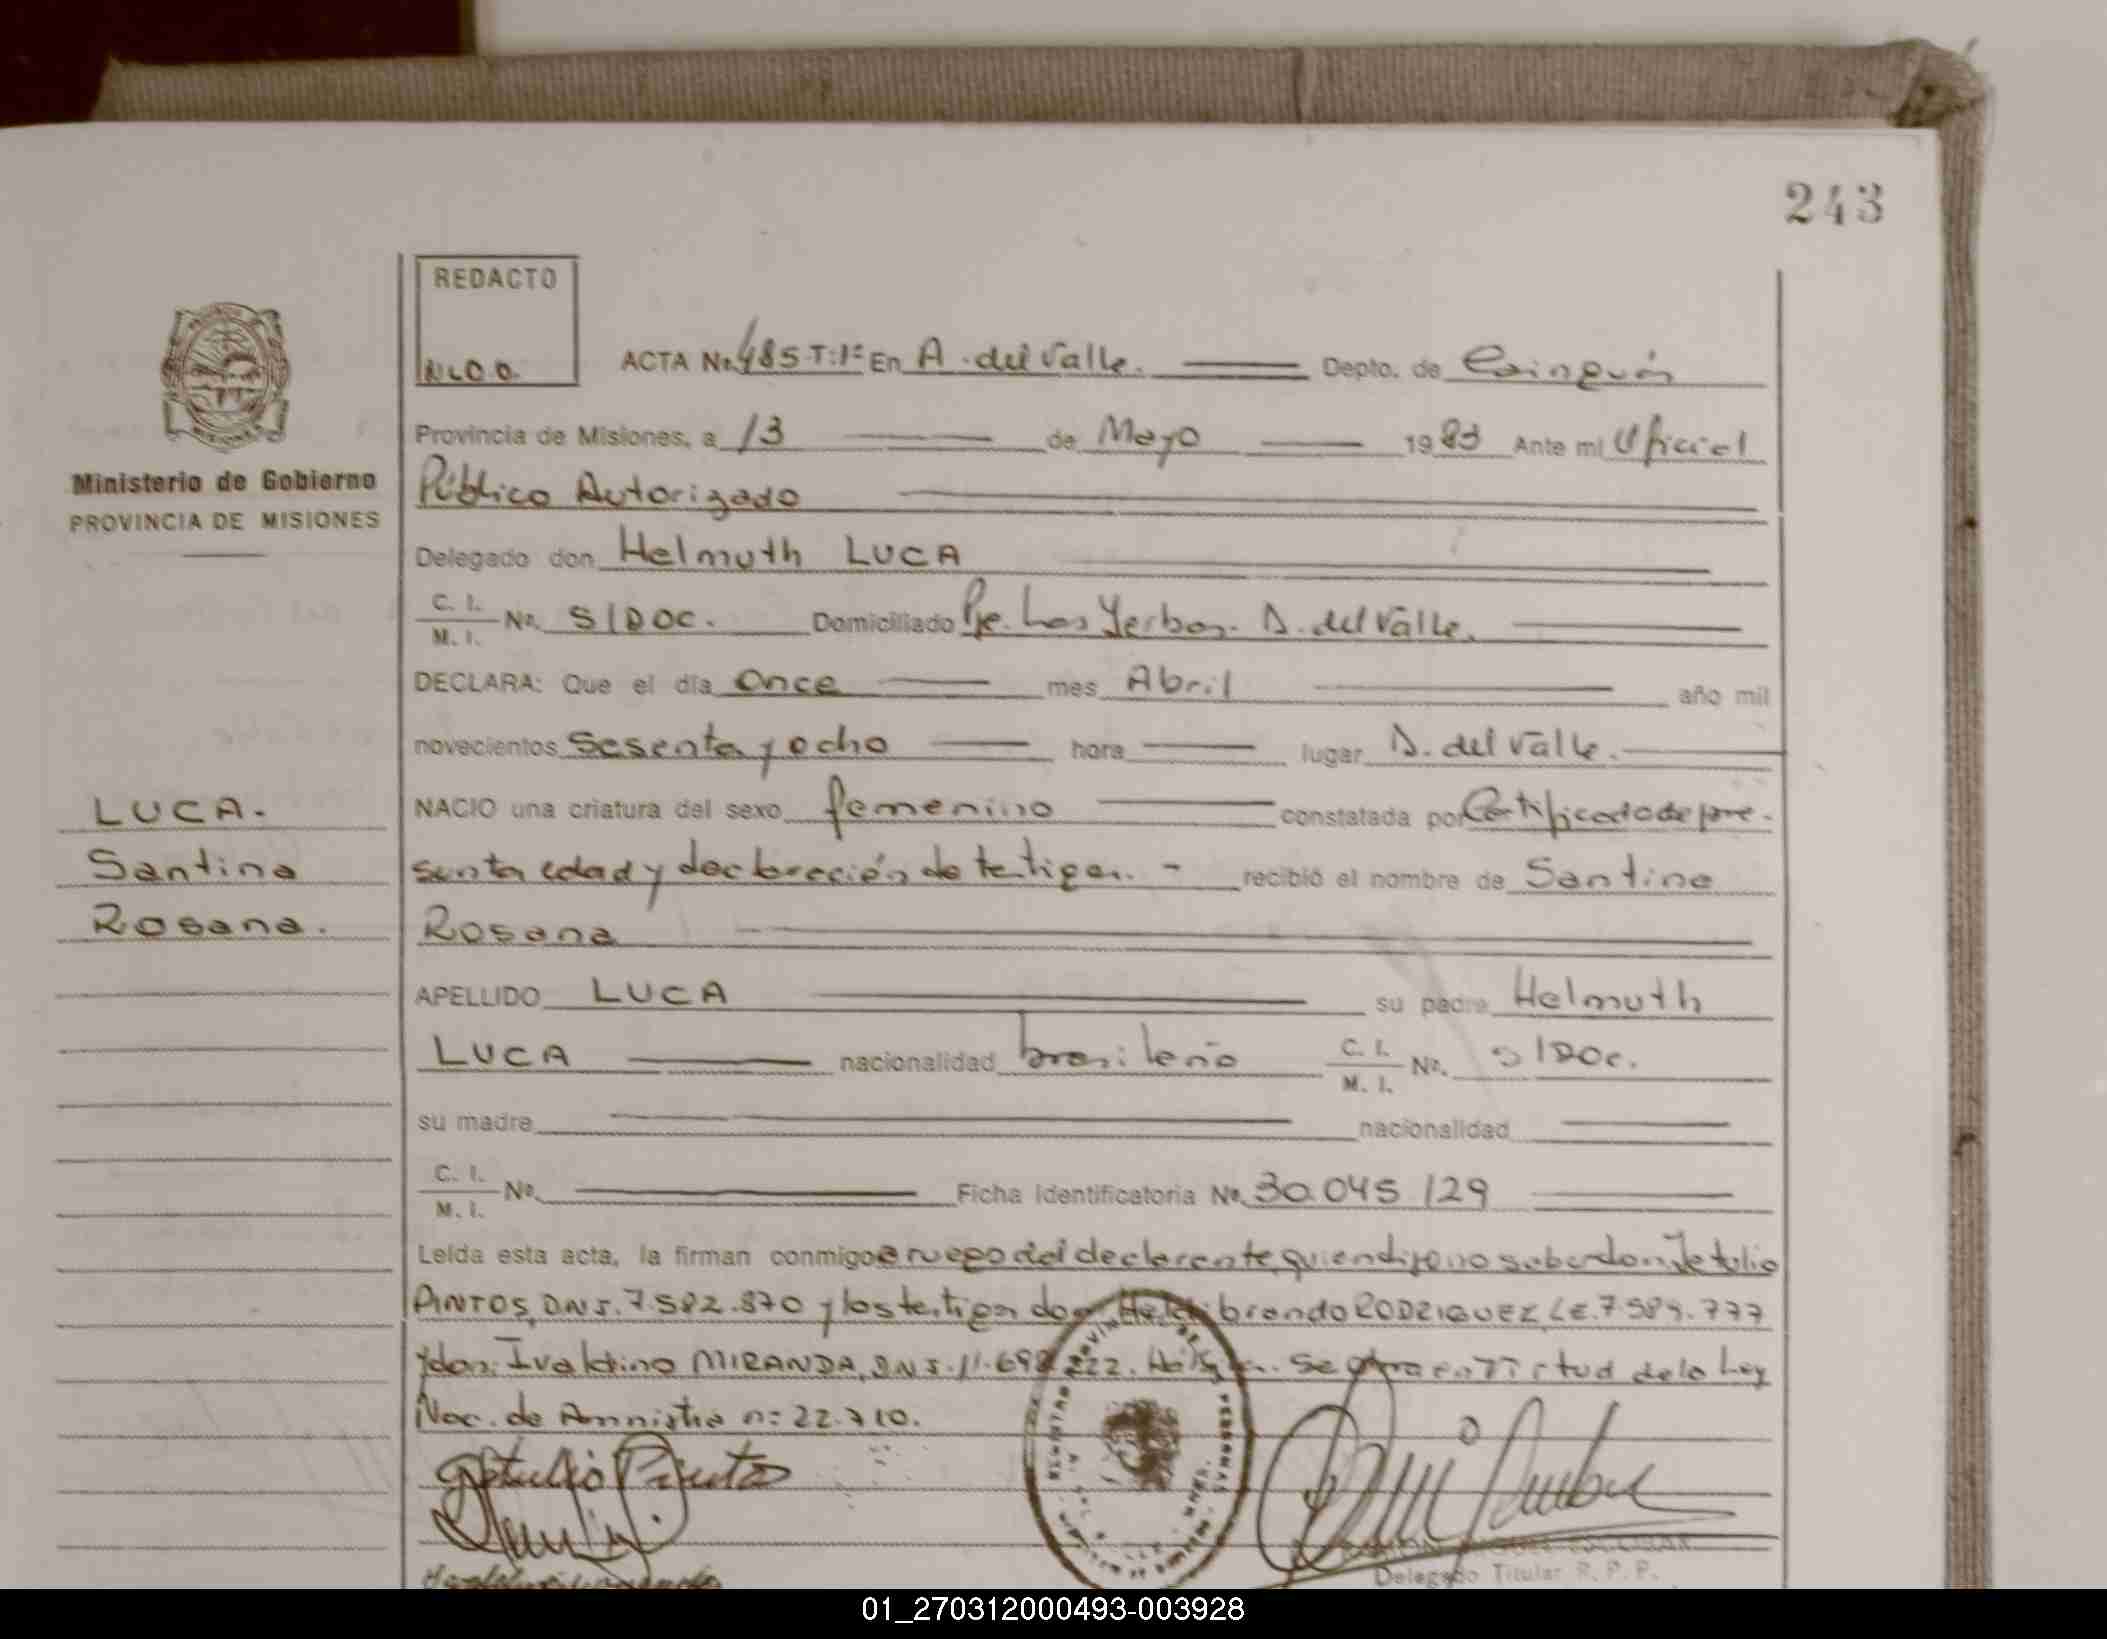 243
REDACTO
N.C.O.O.
ACTA No. 485-T:1º En A. del Valle. Depto. de Cainguás
Provincia de Misiones, a 13 de Mayo 1983 Ante mi Oficial
Público Autorizado
Ministerio de Gobierno
PROVINCIA DE MISIONES
Delegado don Helmuth LUCA
C. I. M. I. No. S/DOC. Domiciliado Pje. Las Yerbas. A. del Valle.
DECLARA: Que el día once mes Abril año mil
novecientos sesenta y ocho hora lugar A. del Valle.
NACIO una criatura del sexo femenino constatada por Certificado de pre-
sunta edad y declaración de testigos. - recibió el nombre de Santina
Rosana
LUCA.
Santina
Rosana.
APELLIDO LUCA su padre Helmuth
LUCA nacionalidad brasileño C. I. M. I. No. S/DOC.
su madre nacionalidad
C. I. M. I. No. Ficha Identificatoria No. 30.045.129
Leída esta acta, la firman conmigo a ruego del declarante, quien dijo no saber don Jetulio
PINTOS, DNI. 7.582.870 y los testigos don brando RODRIGUEZ, LE. 7.589.777
y don: Ivaldino MIRANDA, DNI. 11.698.222. Se otra en virtud de la Ley
Nac. de Amnistía nº 22.710.
Getulio Pinto
Delegado Titular R. P. P.
01_270312000493-003928